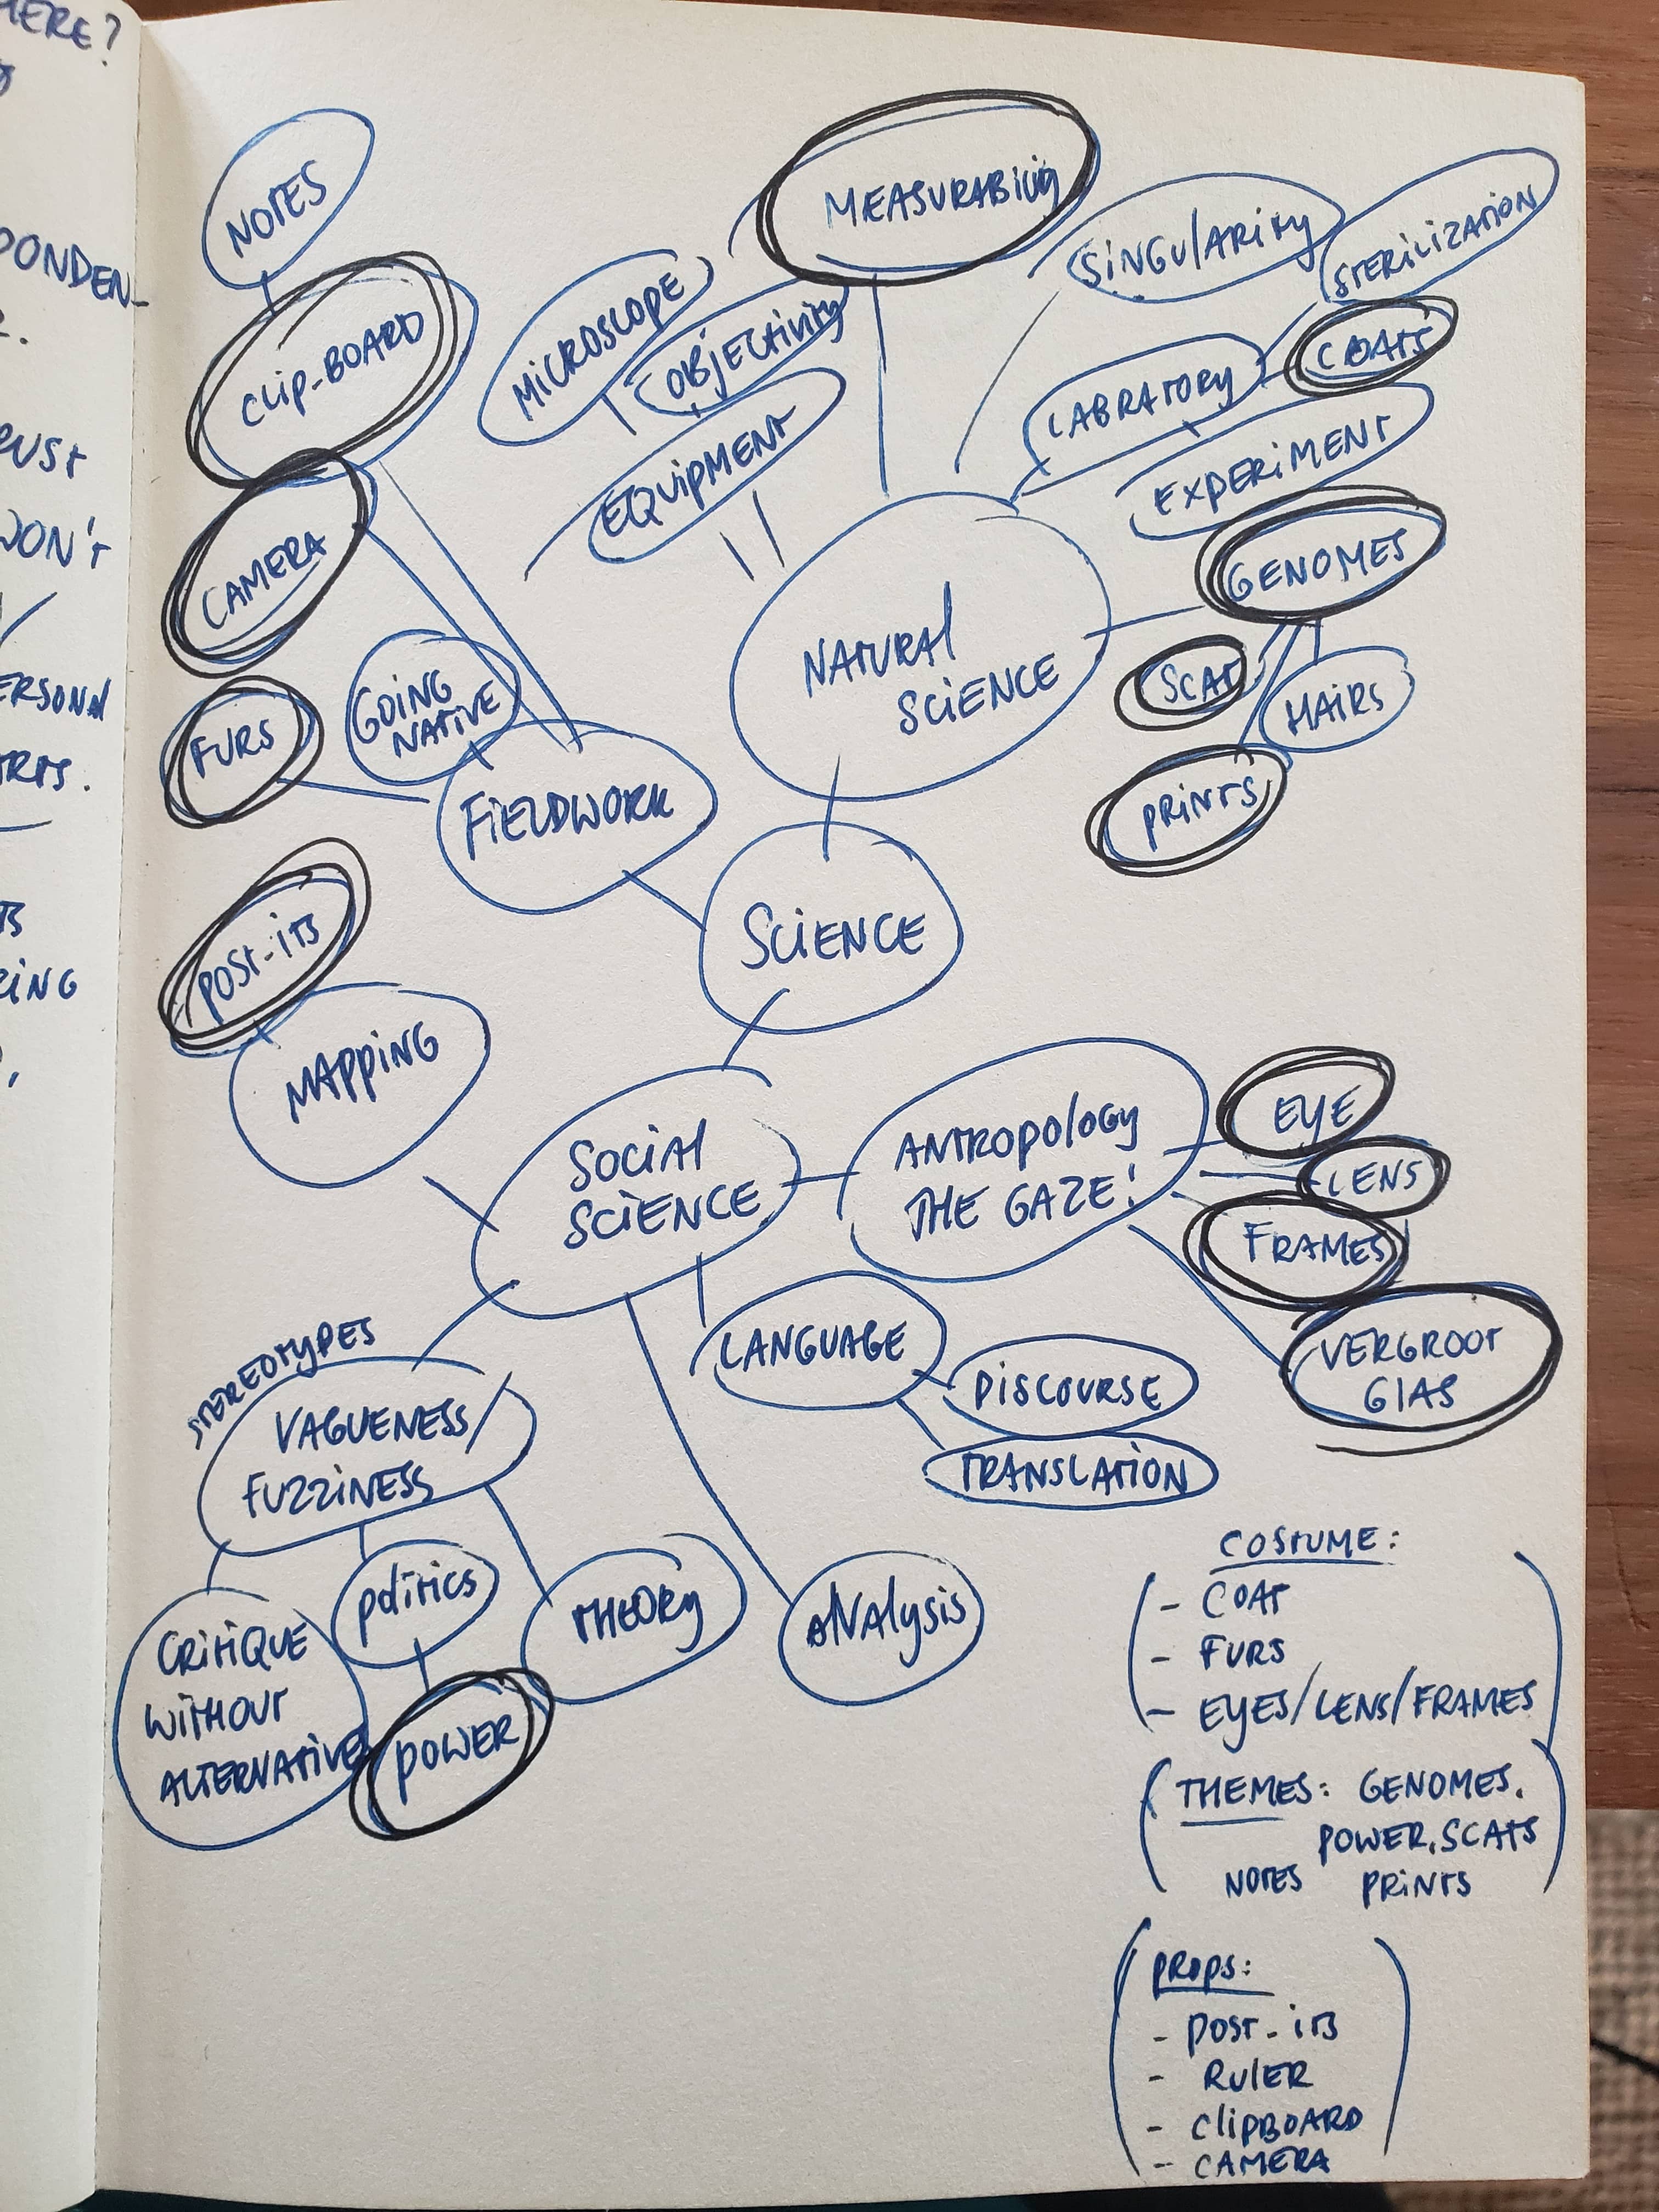 HERE?
PONDEN-
RUST
WON'T
ERSONAL
RTS.
RING
NOTES
CLIP-BOARD
CAMERA
FURS
GOING
NATIVE
FIELDWORK
MICROSCOPE
OBJECTIVITY
EQUIPMENT
MEASURABILITY
SINGULARITY
STERILIZATION
LABRATORY
COATS
EXPERIMENT
GENOMES
SCAT
HAIRS
PRINTS
NATURAL
SCIENCE
SCIENCE
POST-ITS
MAPPING
SOCIAL
SCIENCE
ANTROPOLOGY
THE GAZE!
EYE
LENS
FRAMES
VERGROOT
GLAS
LANGUAGE
DISCOURSE
TRANSLATION
STEREOTYPES
VAGUENESS/
FUZZINESS
CRITIQUE
WITHOUT
ALTERNATIVE
POLITICS
POWER
THEORY
ANALYSIS
COSTUME:
- COAT
- FURS
- EYES/LENS/FRAMES
THEMES: GENOMES.
POWER. SCATS
NOTES PRINTS
PROPS:
- POST-ITS
- RULER
- CLIPBOARD
- CAMERA